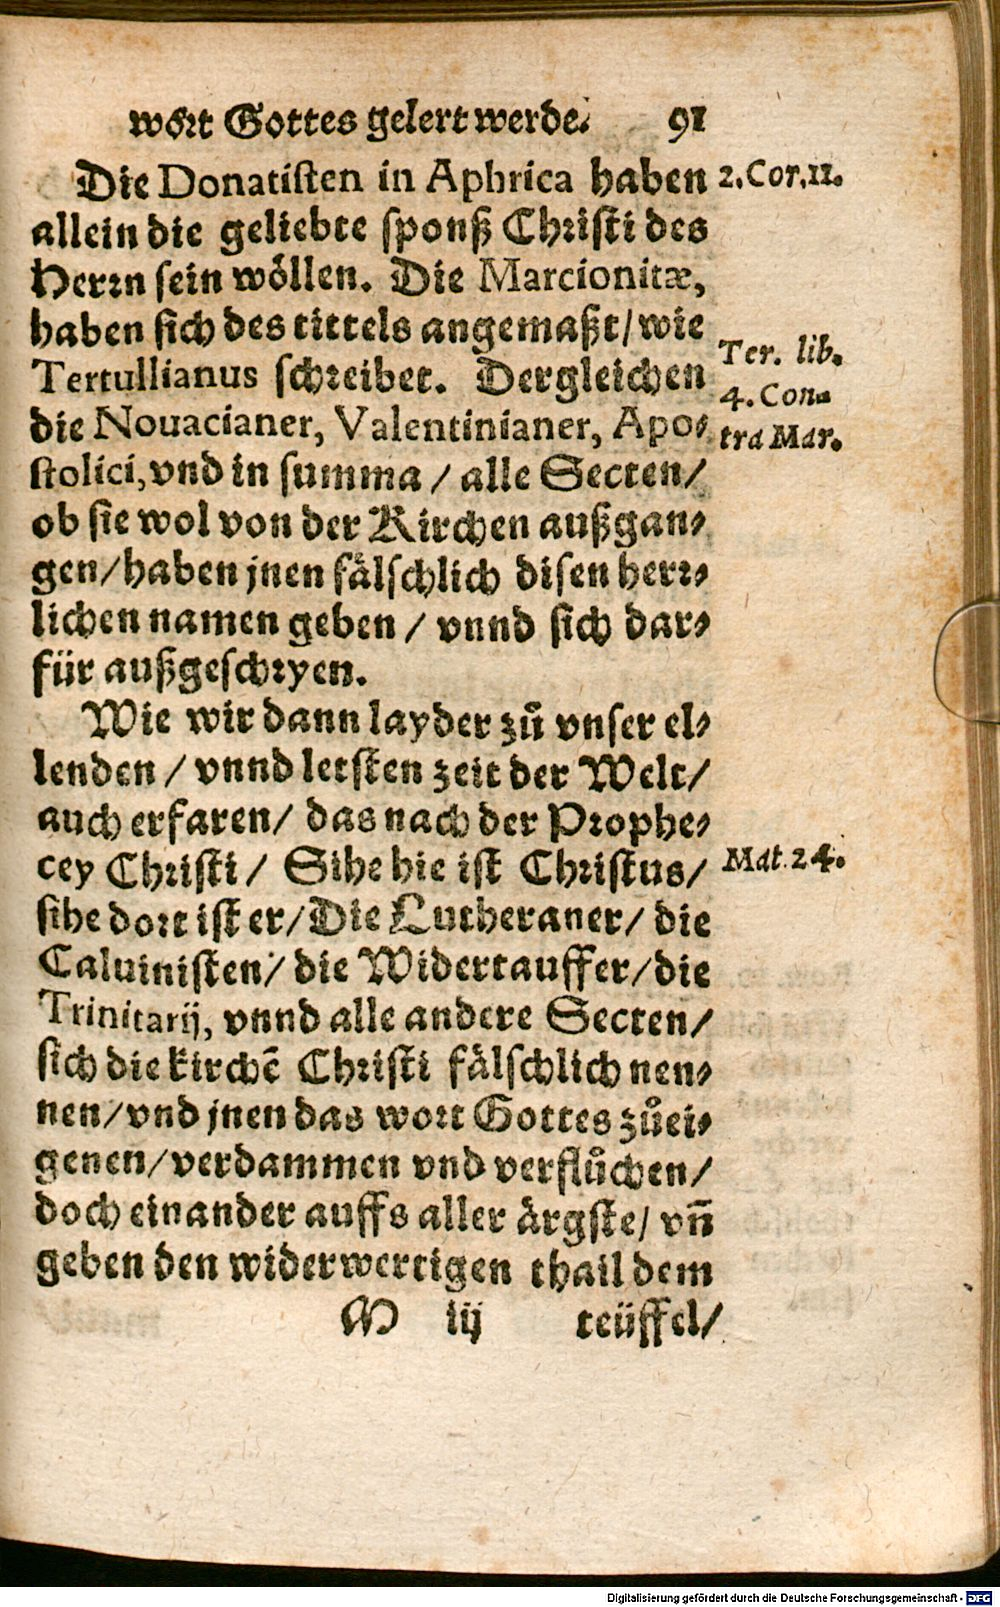 wort Gottes gelert werde. 91
Die Donatisten in Aphrica haben
2. Cor. 11.
allein die geliebte sponß Christi des
Herrn sein wöllen. Die Marcionitæ,
haben sich des tittels angemaßt/ wie
Tertullianus schreibet. Dergleichen
Ter. lib.
4. Con-
tra Mar.
die Nouacianer, Valentinianer, Apo-
stolici, vnd in summa / alle Secten/
ob sie wol von der Kirchen außgan-
gen/ haben jnen fälschlich disen herr-
lichen namen geben / vnnd sich dar-
für außgeschryen.
Wie wir dann layder zů vnser el-
lenden / vnnd letsten zeit der Welt/
auch erfaren/ das nach der Prophe-
cey Christi/ Sihe hie ist Christus/
Mat. 24.
sihe dort ist er/ Die Lutheraner/ die
Caluinisten/ die Widertauffer/ die
Trinitarij, vnnd alle andere Secten/
sich die kirchē Christi fälschlich nen-
nen/ vnd jnen das wort Gottes zůei-
genen/ verdammen vnd verflůchen/
doch einander auffs aller ärgste/ vñ
geben den widerwertigen thail dem
M iij teüffel/
Digitalisierung gefördert durch die Deutsche Forschungsgemeinschaft - DFG